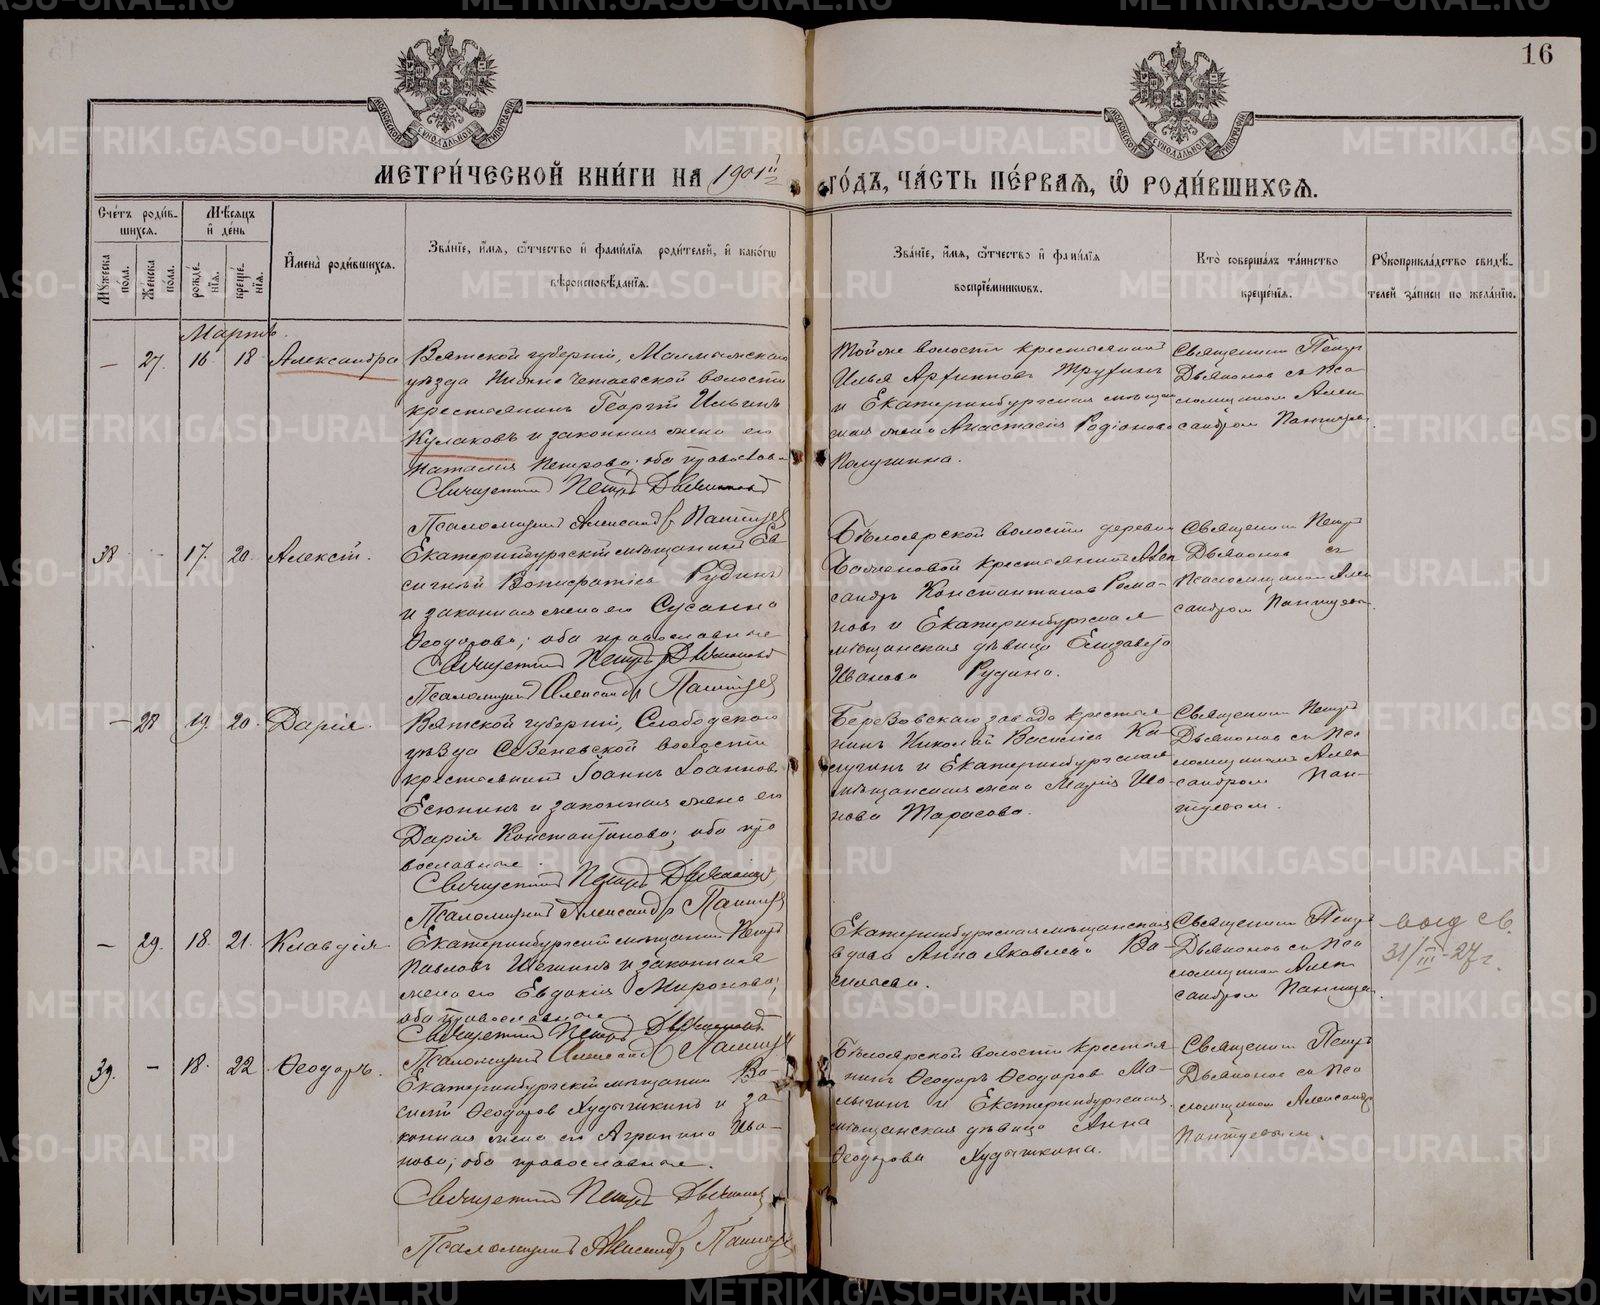 16
МЕТРИ́ЧЕСКОЙ КНИ́ГИ НА 1901й ГО́ДЪ, ЧА́СТЬ ПЕ́РВАЯ, Ѡ РОДИ́ВШИХСЯ.
Сче́тъ роди́вшихся.
Мужеска по́ла.
Женска по́ла.
Мѣсяцъ и҆ де́нь
рожде́нїя.
креще́нїя.
И҆мена̀ роди́вшихся.
Зва́нїе, и҆́мя, ѻ҆́тчество и҆ фами́лїя роди́телей, и҆ како́гѡ вѣроисповѣ́данїя.
Зва́нїе, и҆́мя, ѻ҆́тчество и҆ фами́лїя воспрїе́мникѡвъ.
Кто̀ соверша́лъ та́инство креще́нїя.
Рукоприкла́дство свидѣ́телей за́писи по жела́нїю.
Мартъ.
— 27. 16. 18. Александра
Вятской губерніи, Малмыжскаго
уѣзда
волости
крестьянинъ Георгій Ильинъ
Кулаковъ и законная жена его
Наталия Петрова; оба православн.
Священникъ Петръ Дьяконовъ
Псаломщикъ Александръ Пантуев
Той же волости крестьянинъ
Илья Архиповъ Трухинъ
и Екатеринбургская мѣщан
ская жена Анастасія Родіонова
Священникъ Петръ
Дьяконовъ съ пса
ломщикомъ Алек
сандромъ Пантуев.
38 — 17. 20. Алексій.
Екатеринбургскій мѣщанинъ Ев
Рудинъ
и законная жена его Сусанна
Ѳеодорова; оба православные
Священникъ Петръ Дьяконовъ
Псаломщикъ Александръ Пантуев
Бѣлоярской волости деревни
крестьянинъ Алек
сандръ Константиновъ Рома-
новъ и Екатеринбургская
мѣщанская дѣвица Елизавета
Иванова Рудина.
Священникъ Петръ
Дьяконовъ съ
псаломщикомъ Алек
сандромъ Пантуевы
— 28 19. 20. Дарія.
Вятской губерніи, Слободского
уѣзда Сезеневской волости
крестьянинъ Іоаннъ Іоанновъ
Есюнинъ и законная жена его
Дарія Константинова; оба пра
вославные.
Священникъ Петръ Дьяконовъ
Псаломщикъ Александръ Пантуев
Березовскаго завода крестья
нинъ Николай Василіевъ Ка-
лугинъ и Екатеринбургская
мѣщанская жена Марія Ива-
нова Тарасова.
Священникъ Петръ
Дьяконовъ съ пса
ломщикомъ Алек
сандромъ Пан-
туевым.
— 29. 18. 21. Клавдія
Екатеринбургскій мѣщанинъ Петръ
Павловъ и законная
жена его Евдокія Миронова;
оба православные
Священникъ Петръ Дьяконовъ
Псаломщикъ Александръ Пантуев
Екатеринбургская мѣщанская
вдова Анна Яковлева Ва-
сильева.
Священникъ Петръ
Дьяконовъ съ пса
ломщикомъ Алек
сандромъ Пантуев.
выд св.
31/III-27 г.
39. — 18. 22 Ѳеодоръ.
Екатеринбургскій мѣщанинъ Ва-
силій Ѳеодоровъ Худышкинъ и за-
конная жена его Агрипина Ива-
нова; оба православные.
Священникъ Петръ Дьяконовъ
Псаломщикъ Александръ Пантуев
Бѣлоярской волости крестья
нинъ Ѳеодоръ Ѳеодоровъ Ма-
лыгинъ и Екатеринбургская
мѣщанская дѣвица Анна
Ѳеодорова Худышкина.
Священникъ Петръ
Дьяконовъ съ пса
ломщикомъ Александр
Пантуевым.
METRIKI.GASO-URAL.RU